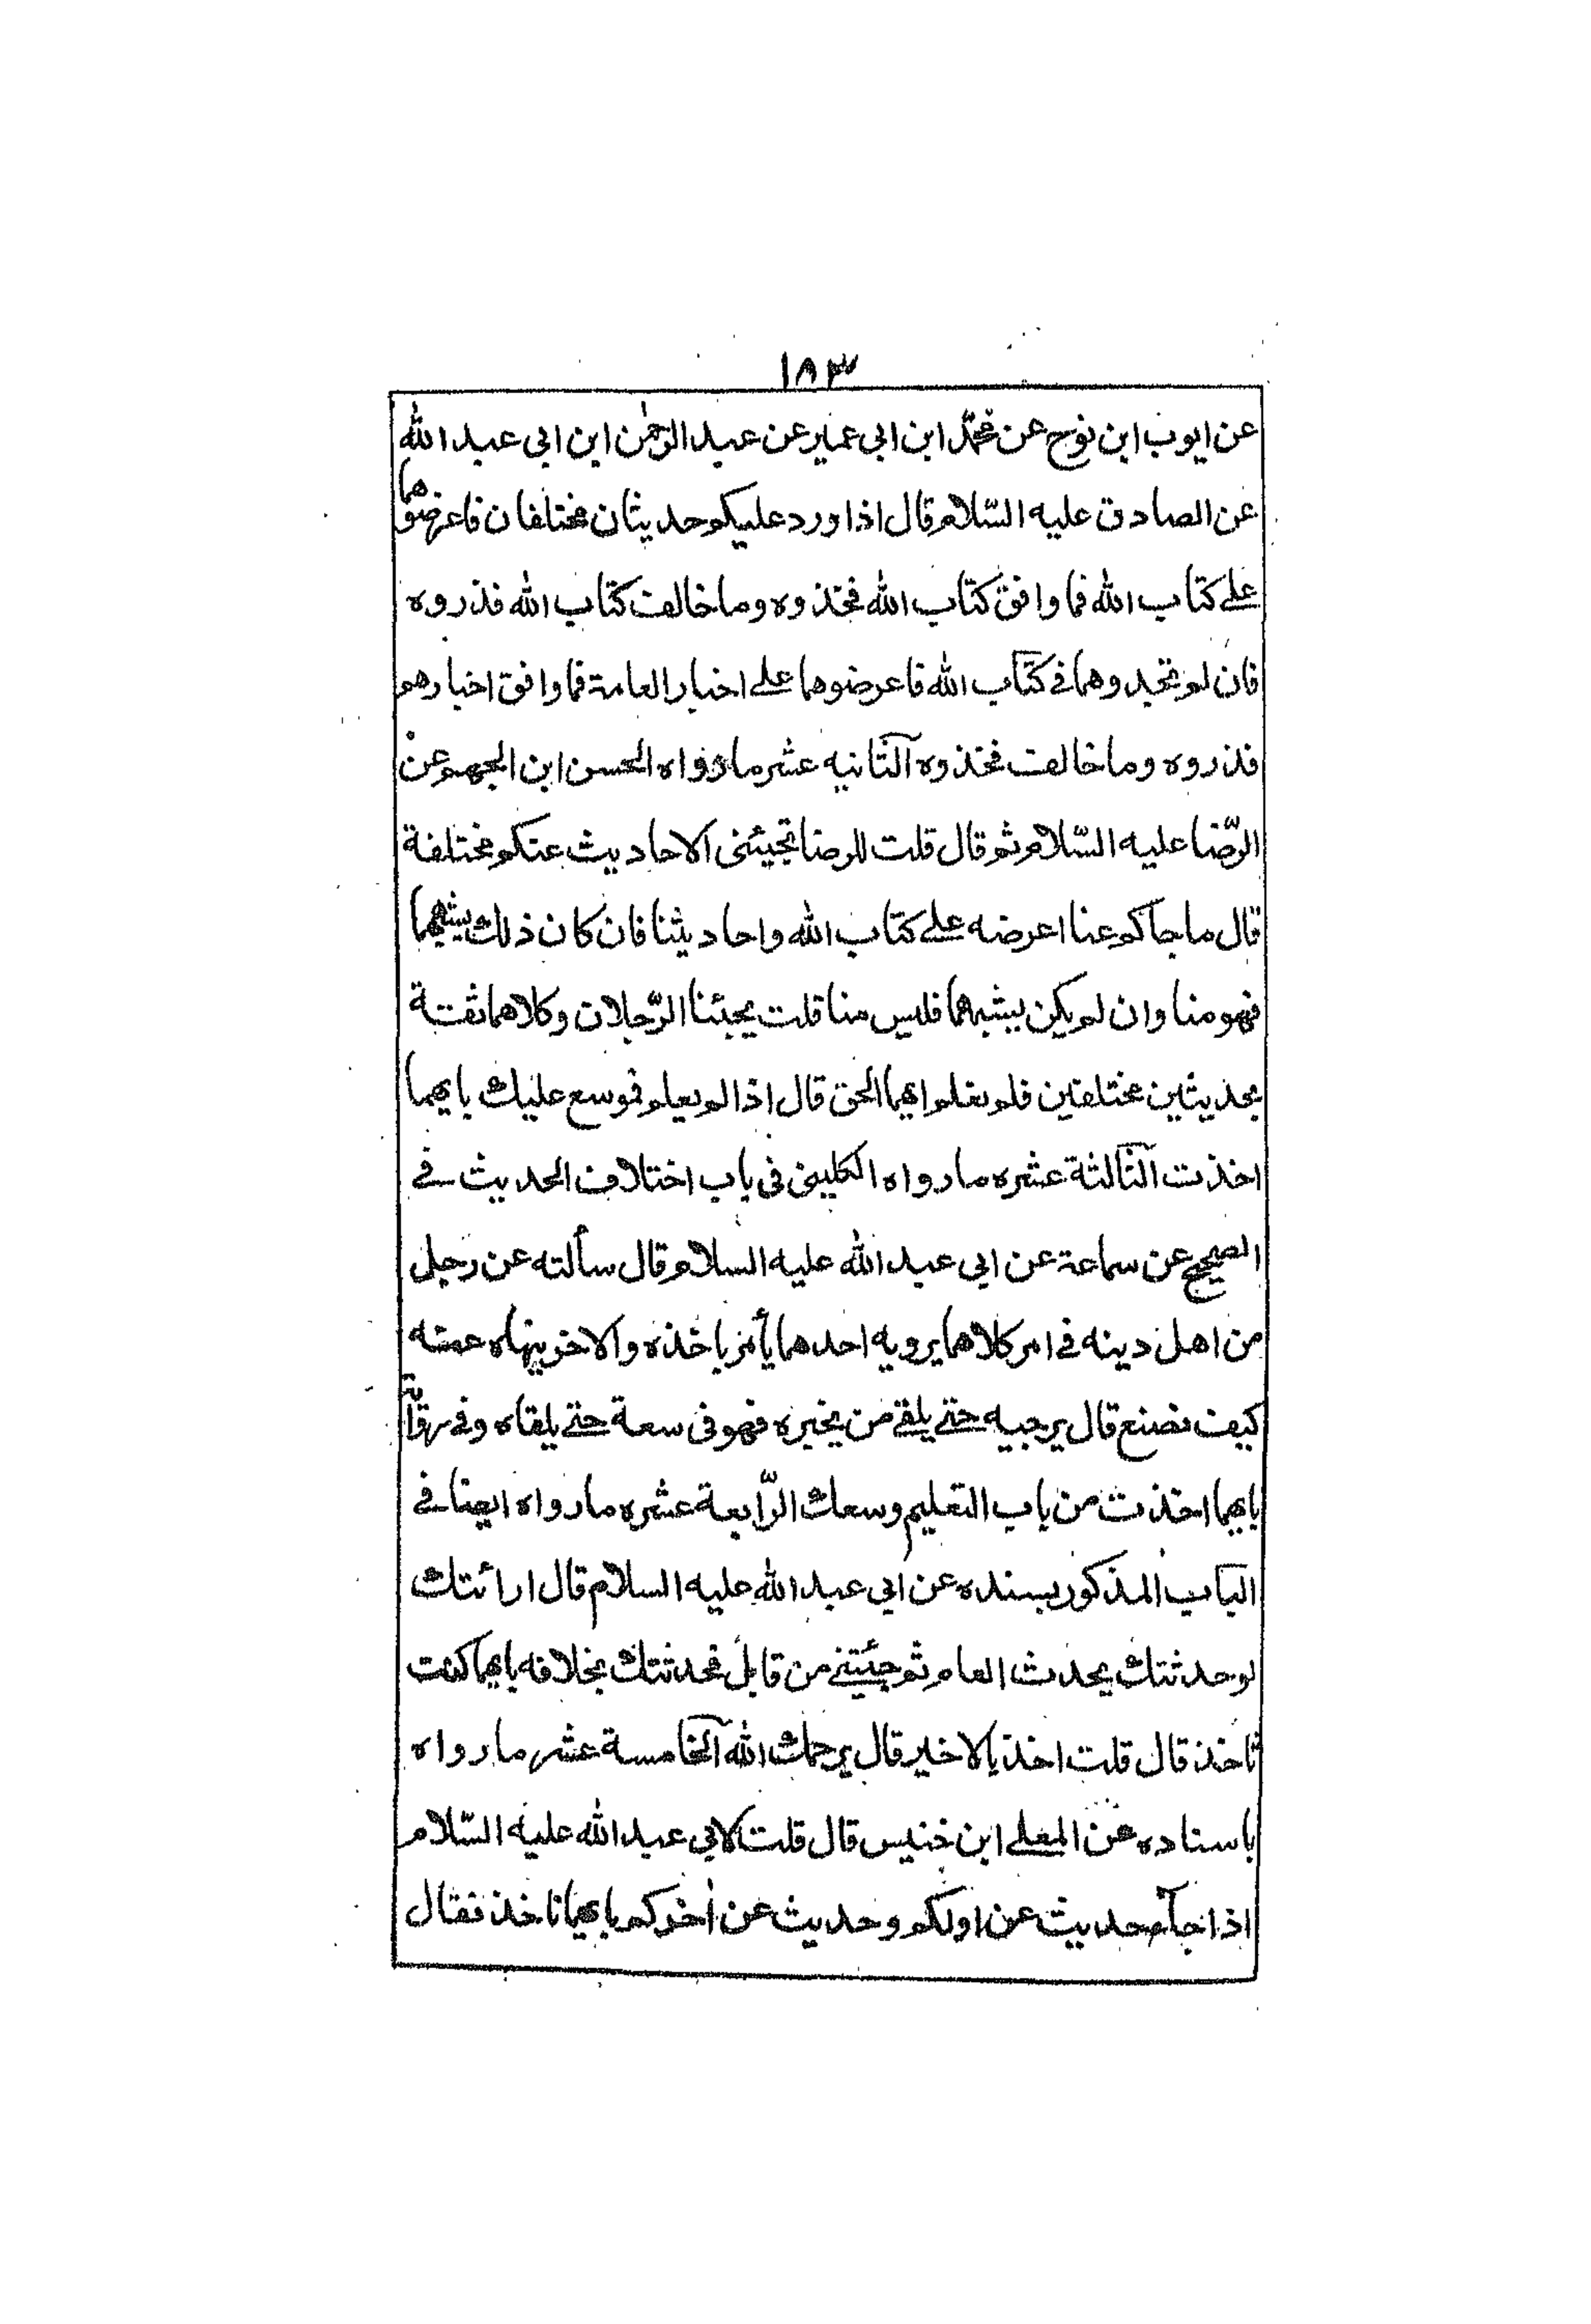 ١٨٣
عن ايوب ابن نوح عن محمّد ابن ابى عمير عن عبد الرحمٰن ابن ابى عبد الله
عن الصادق عليه السّلام قال اذا ورد عليكم حديثان مختلفان فاعرضوهما
على كتاب الله فما وافق كتاب الله فخذوه وما خالف كتاب الله فذروه
فان لم تجدوهما فى كتاب الله فاعرضوهما على اخبار العامة فما وافق اخبارهم
فذروه وما خالف فخذوه الثانيه عشر ما رواه الحسن ابن الجهم عن
الرّضا عليه السّلام ثم قال قلت للرضا تجيئنى الاحاديث عنكم مختلفة
قال ما جآكم عنا اعرضه على كتاب الله واحاديثنا فان كان ذلك يشبههما
فهو منا وان لم يكن يشبههما فليس منا قلت يجيئنا الرّجلان وكلاهما ثقتة
بحديثين مختلفين فلم نعلم ايهما الحق قال اذا لم يعلم فموسع عليك بايهما
اخذت الثالثة عشره ما رواه الكلينى فى باب اختلاف الحديث فى
الصحيح عن سماعة عن ابى عبد الله عليه السلام قال سألته عن رجل
من اهل دينه فى امر كلاهما يرويه احدهما يأمر باخذه والاخر ينهاه عنه
كيف نصنع قال يرجيه حتى يلقى من يخبره فهو فى سعة حتى يلقاه وفى رواية
بايهما اخذت من باب التعليم وسعك الرّابعة عشره ما رواه ايضا فى
الباب المذكور بسنده عن ابى عبد الله عليه السلام قال ارائتك
لو حدثتك بحدث العام ثم جئتنى من قابل فحدثتك بخلافه بايهما كنت
تاخذ قال قلت اخذ بالاخير قال يرحمك الله الخامسة عشر ما رواه
باسناده عن المعلى ابن خنيس قال قلت لابى عبد الله عليه السّلام
اذا جآء حديث عن اولكم وحديث عن اٰخركم بايهما ناخذ فقال